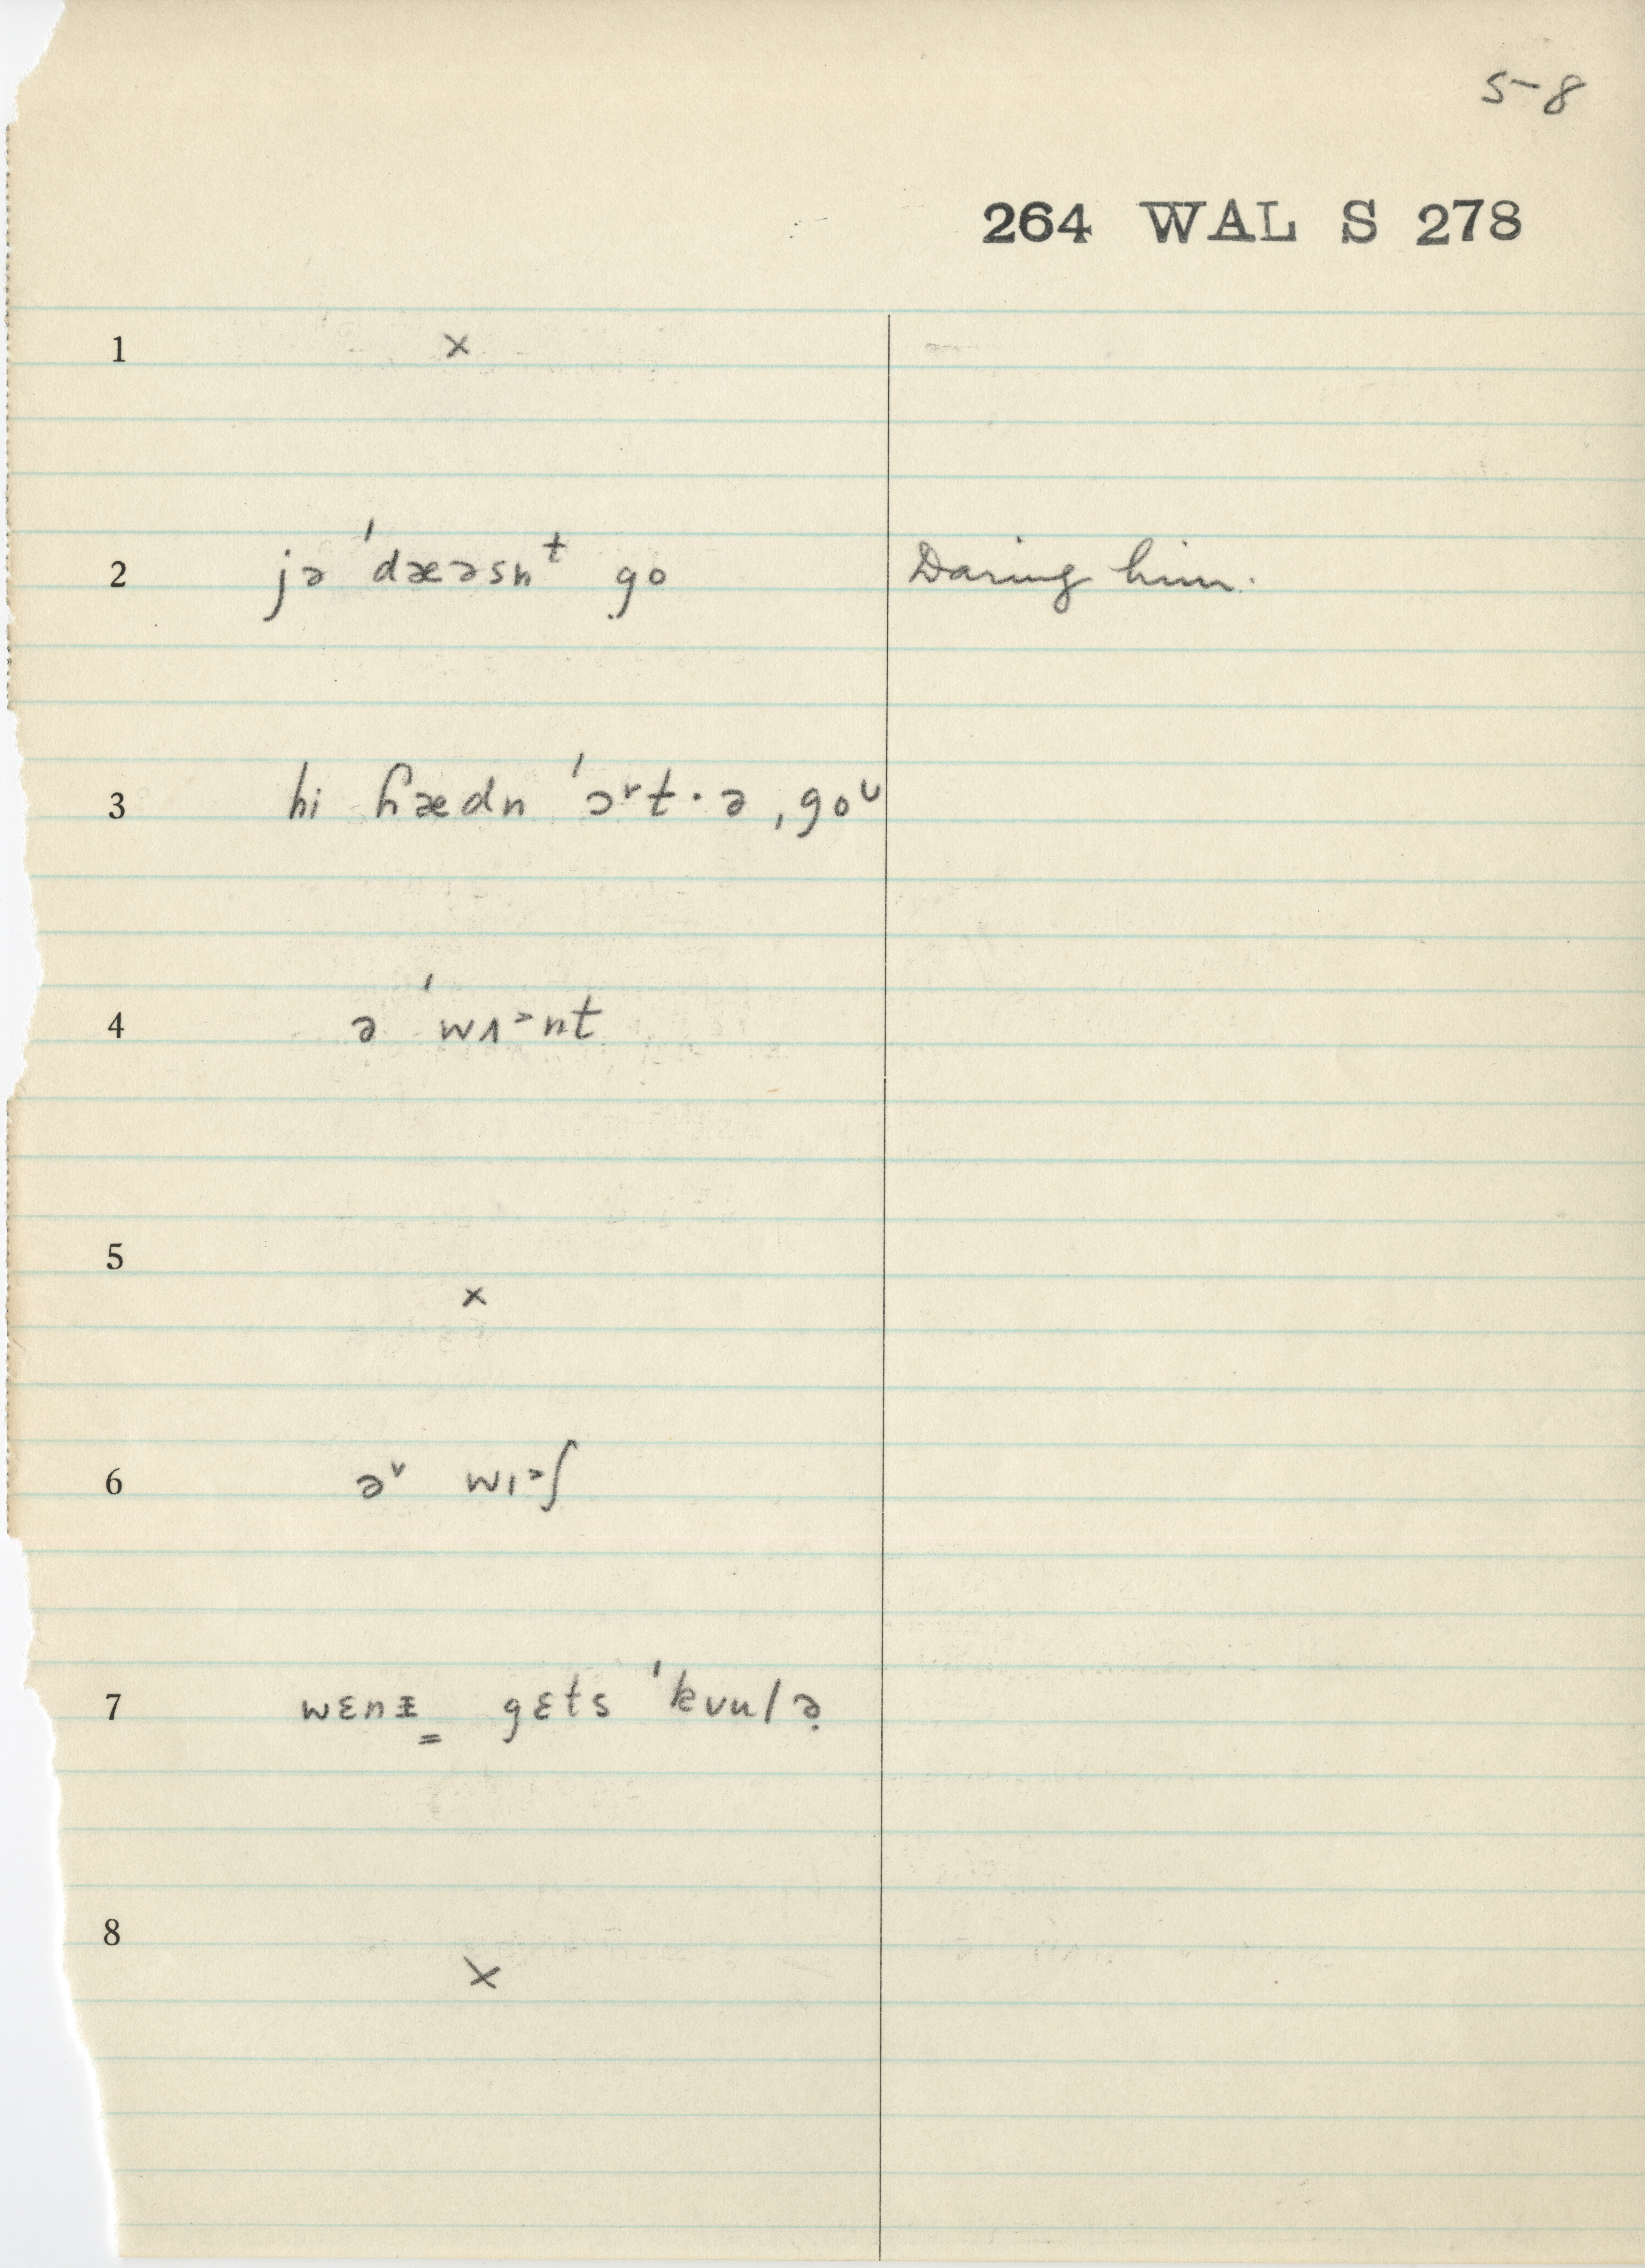 5-8
264 WAL S 278
1 ×
2 jə ˈdæəsnᵗ go Daring him.
3 hi ɦædn ˈɔ˅t·ə ˌgoᶸ
4 ə ˈwʌ˃nt
5 ×
6 ə˅ wı˃ʃ
7 wɛnɪ̵̳ gɛts ˈkʊulə̣
8 ×